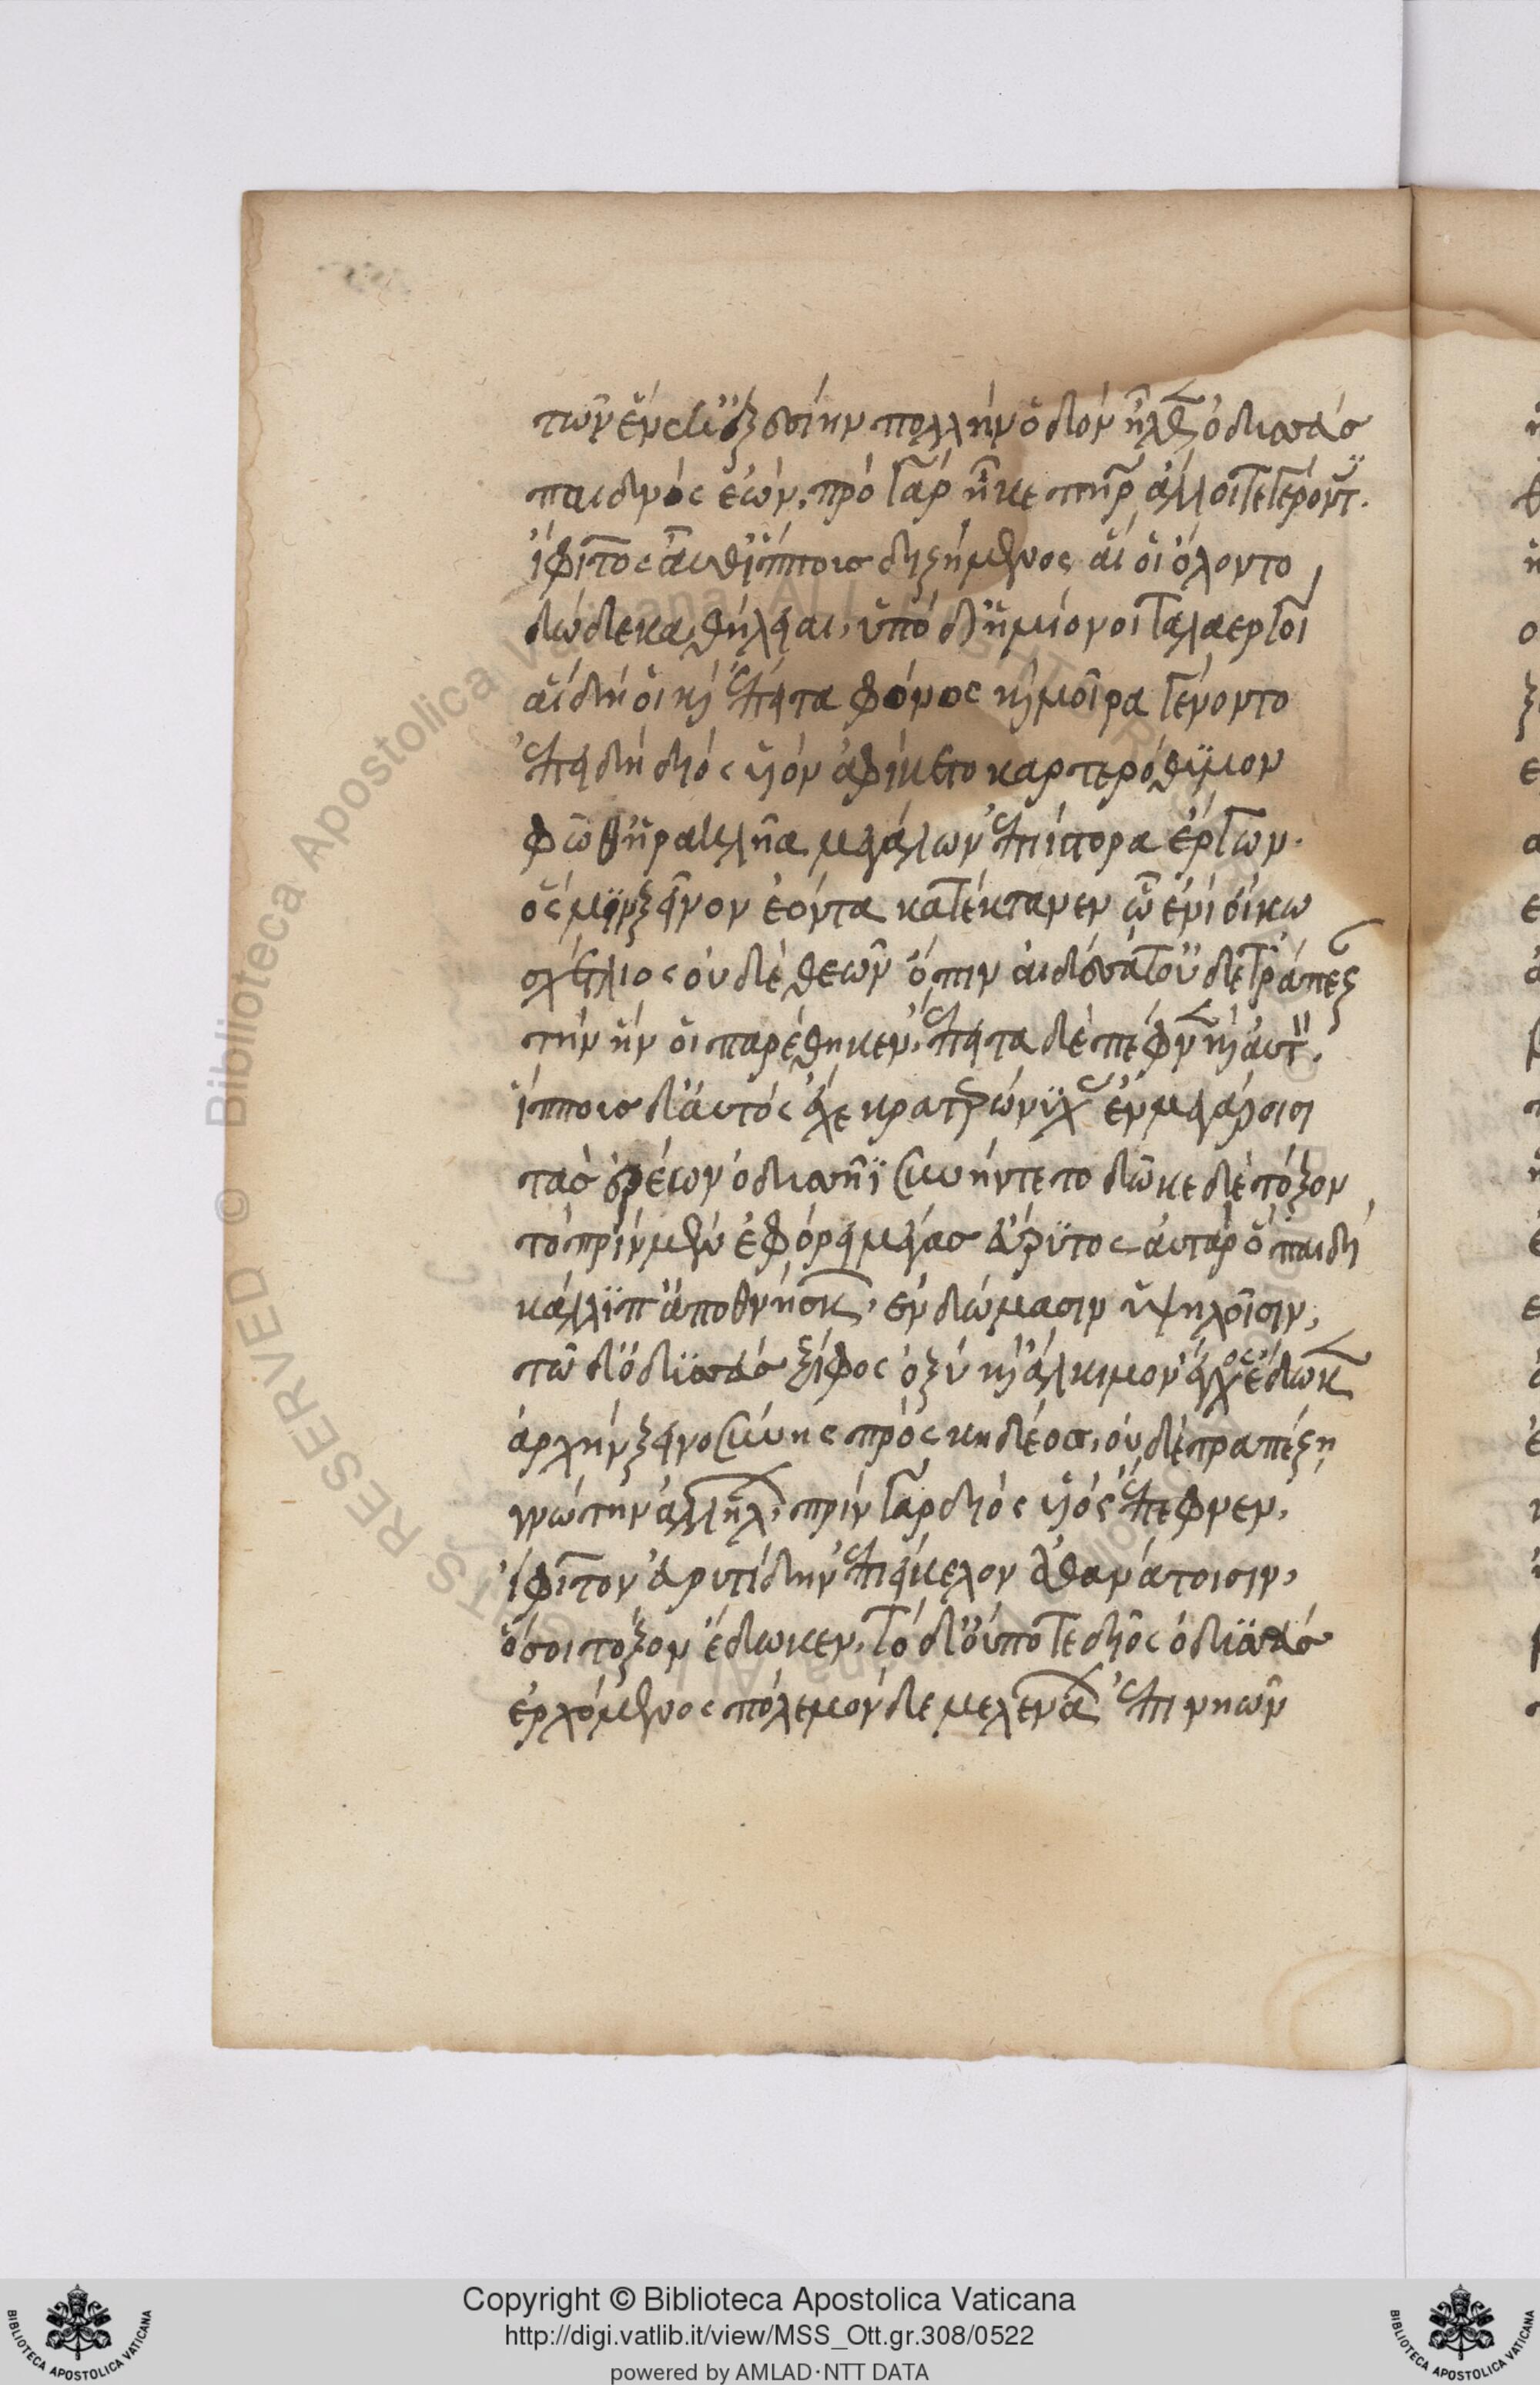 τῶν ἕνεκ' ἐξεσίην πολλὴν ὁδὸν ἦλθεν ὀδυσσεὺς
παιδνὸς ἐών, πρὸ γὰρ ἧκε πατὴρ ἄλλοι τε γέροντες.
ἴφιτος αὖθ' ἵππους διζήμενος αἵ οἱ ὄλοντο
δώδεκα θήλειαι, ὑπὸ δ' ἡμίονοι ταλαεργοὶ
αἳ δή οἱ καὶ ἔπειτα φόνος καὶ μοῖρα γένοντο
ἐπειδὴ διὸς υἱὸν ἀφίκετο καρτερόθυμον
φῶθ' ἡρακλῆα μεγάλων ἐπιίστορα ἔργων.
ὅς μιν ξεῖνον ἐόντα κατέκτανεν ᾧ ἐνὶ οἴκω
σχέτλιος οὐδὲ θεῶν ὄπιν αἰδέσατ' οὐδὲ τράπεζαν
τὴν ἥν οἱ παρέθηκεν, ἔπειτα δὲ πέφνε καὶ αὐτόν.
ἵππους δ' αὐτὸς ἔχε κρατερώνυχας ἐν μεγάροισι
τὰς ἐρέων ὀδυσῆϊ συνήντετο δῶκε δὲ τόξον
τὸ πρὶν μὲν ἐφόρει μέγας εὔρυτος αὐτὰρ ὃ παιδὶ
κάλλιπ' ἀποθνήσκων, ἐν δώμασιν ὑψηλοῖσιν,
τῶ δ' ὀδυσσεὺς ξίφος ὀξὺ καὶ ἄλκιμον ἔγχος ἔδωκεν
ἀρχὴν ξεινοσύνης προσκηδέος, οὐδὲ τραπέζῃ
γνώτην ἀλλήλων, πρὶν γὰρ διὸς υἱὸς ἔπεφνεν,
ἴφιτον εὐρυτίδην ἐπιείκελον ἀθανάτοισιν,
ὅς οἱ τόξον ἔδωκεν, τὸ δ' οὔποτε δῖος ὀδυσσεὺς
ἐρχόμενος πόλεμον δὲ μελαινάων ἐπὶ νηῶν
Copyright © Biblioteca Apostolica Vaticana
http://digi.vatlib.it/view/MSS_Ott.gr.308/0522
powered by AMLAD·NTT DATA